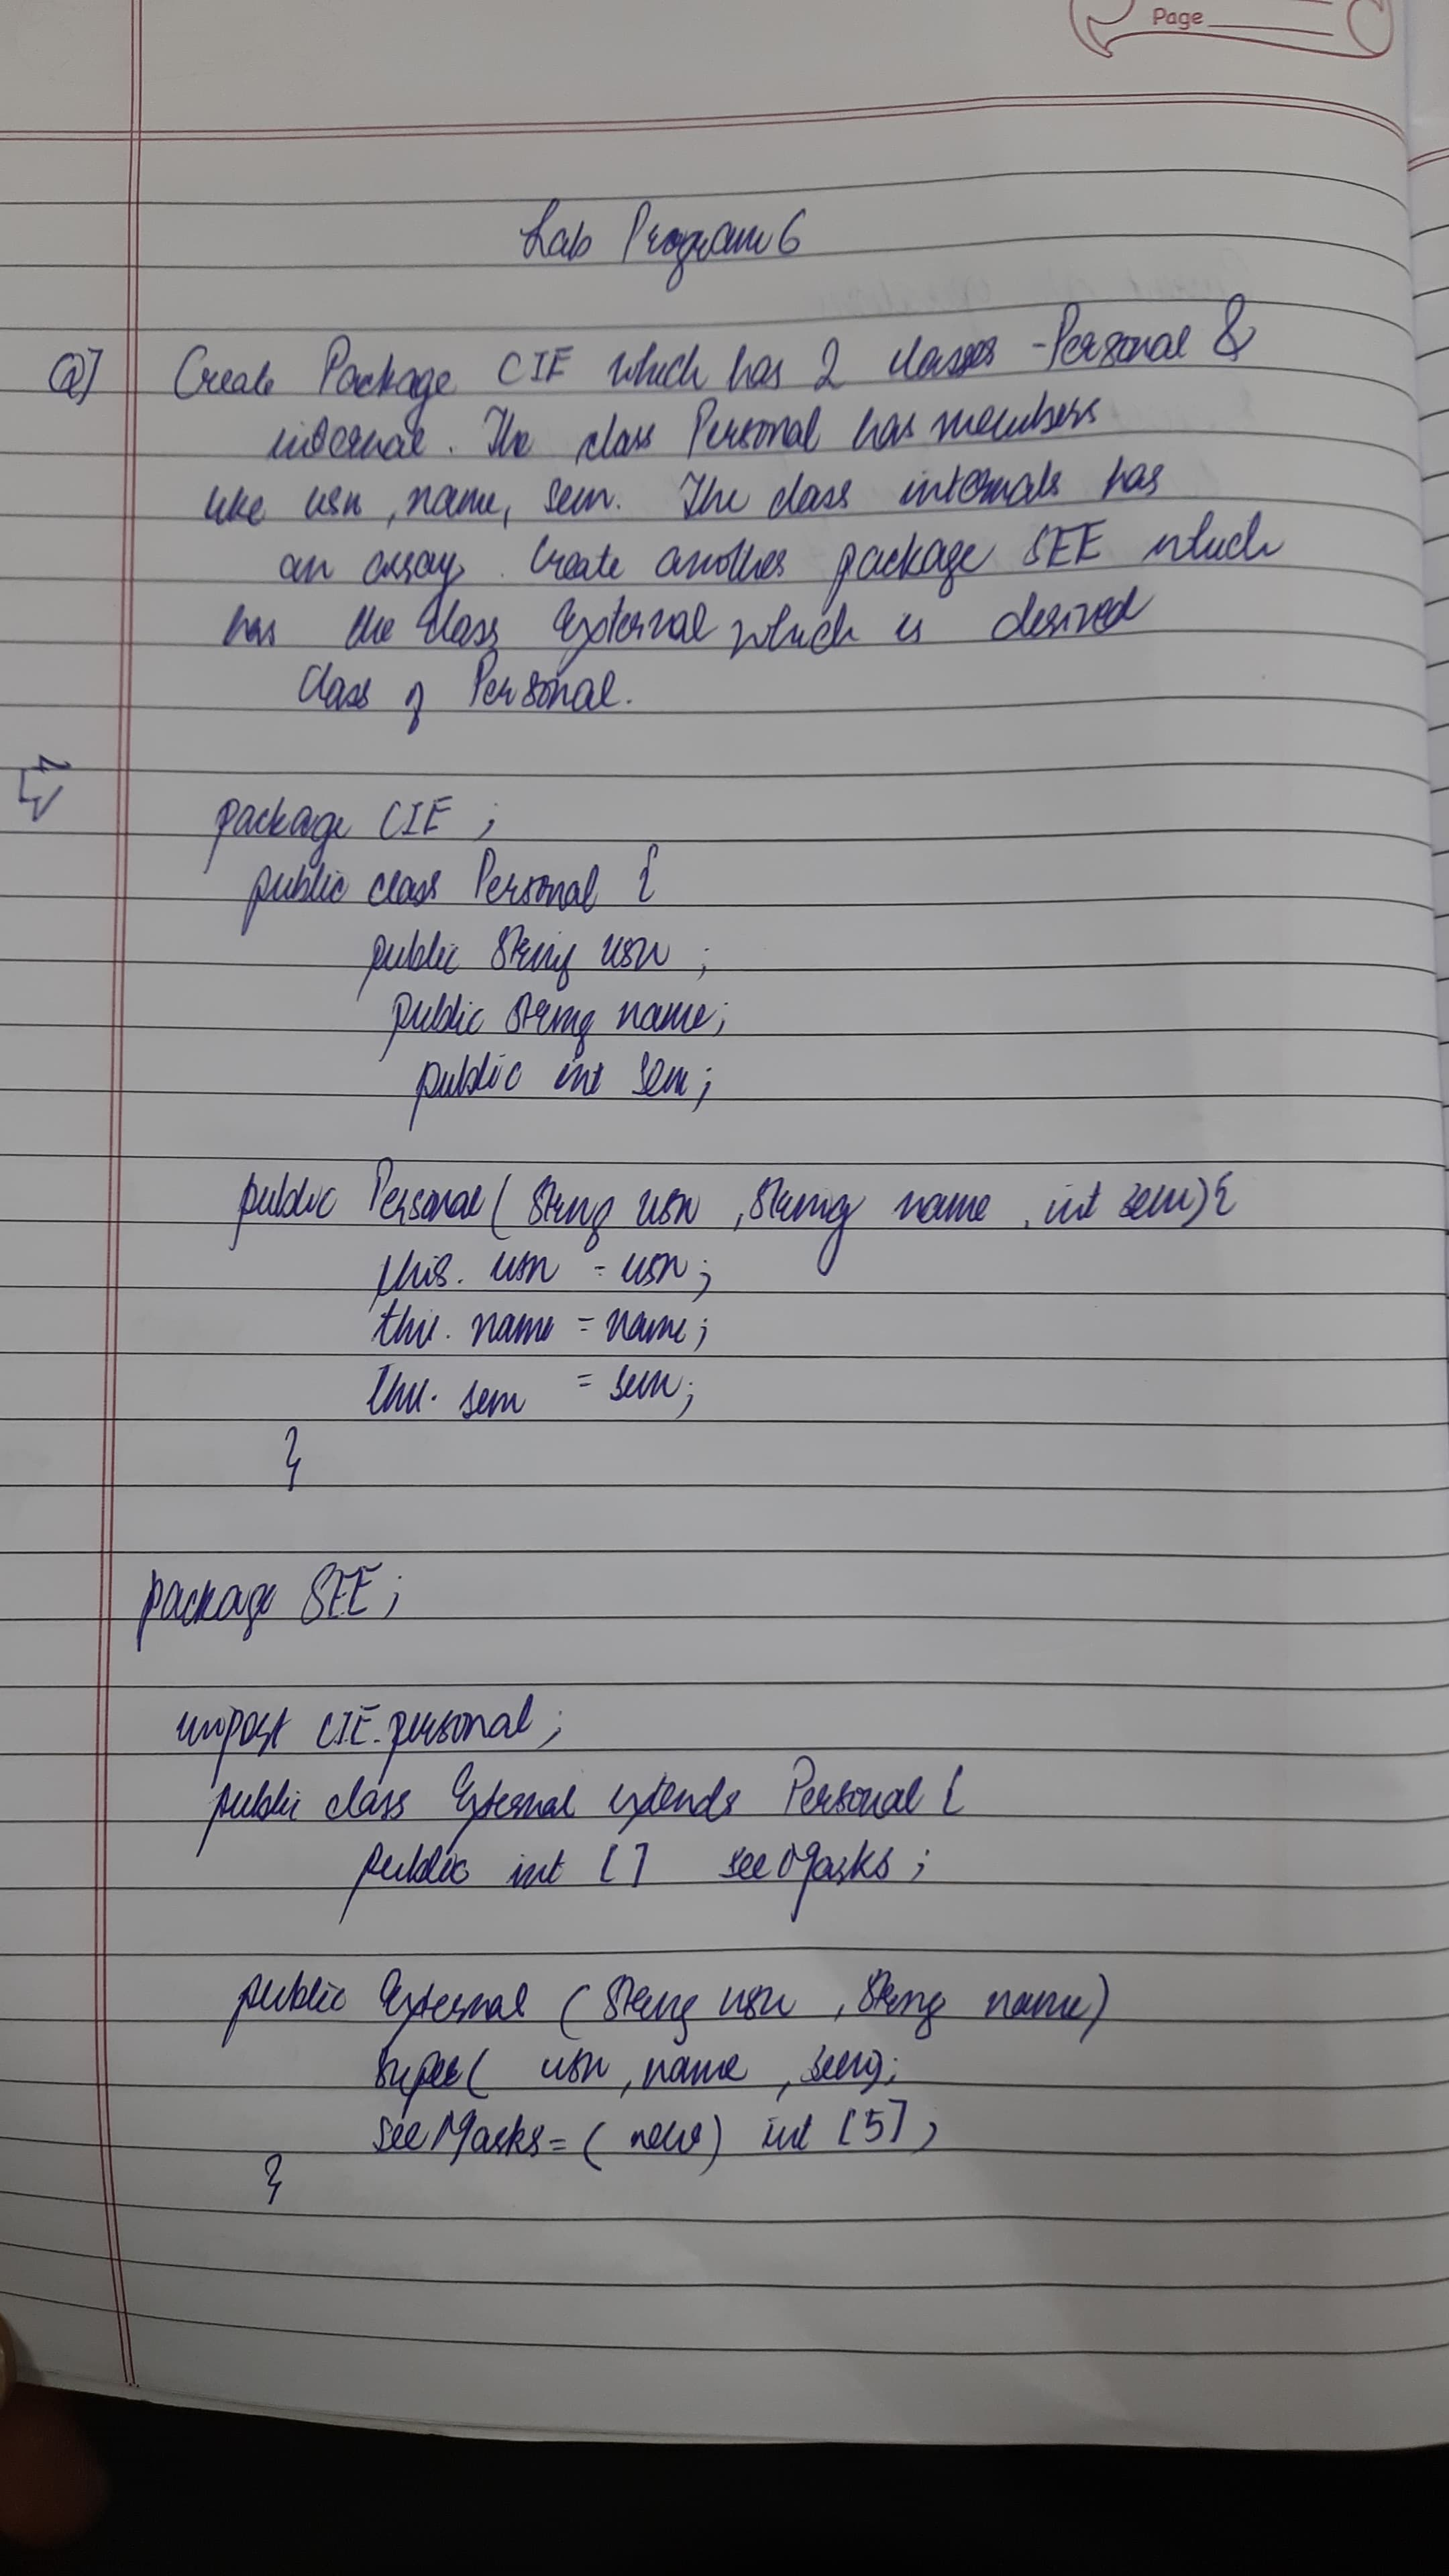 Page
Lab Program 6
Q] Create Package CIE which has 2 classes - Personal &
internal. The class Personal has members
like usn, name, sem. The class internals has
an array. Create another package SEE which
has the class External which is derived
class of Personal.
package CIE ;
public class Personal {
public String usn ;
public String name;
public int sem;
public Personal ( String usn , String name , int sem) {
this. usn = usn;
this. name = name;
this. sem = sem;
}
package SEE;
import CIE.personal;
public class External extends Personal {
public int [ ] seeMarks ;
public External ( String usn , String name)
super( usn , name , sem);
seeMarks = ( new) int [5] ;
}